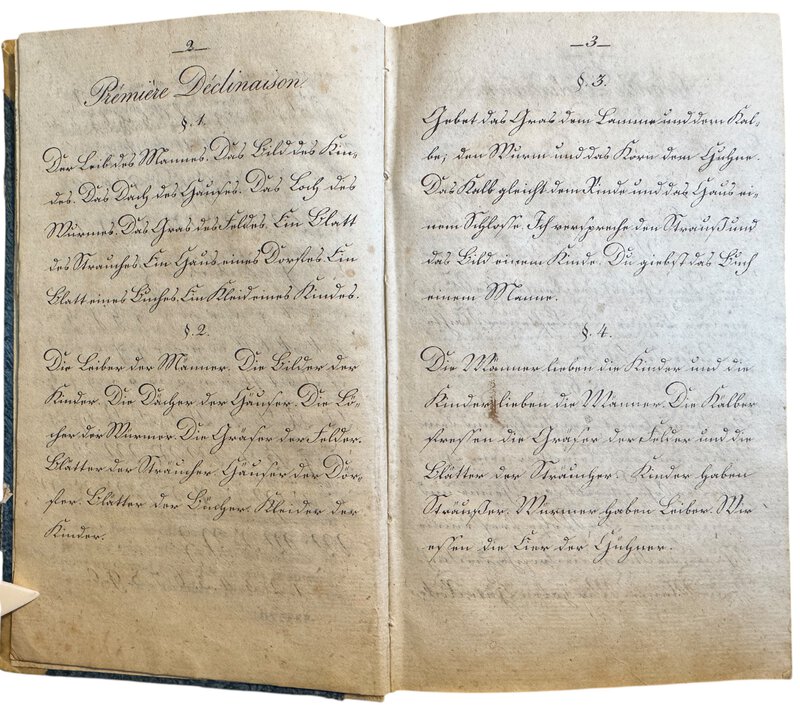 —2—
Prémière Déclinaison.
§. 1.
Der Leib des Mannes. Das Bild des Kin-
des. Das Dach des Hauses. Das Loch des
Wurmes. Das Gras des Feldes. Ein Blatt
des Strauches. Ein Haus eines Dorfes. Ein
Blatt eines Buches. Ein Kleid eines Kindes.
§. 2.
Die Leiber der Männer. Die Bilder der
Kinder. Die Dächer der Häuser. Die Lö-
cher der Würmer. Die Gräser der Felder.
Blätter der Sträucher. Häuser der Dör-
fer. Blätter der Bücher. Kleider der
Kinder.
—3—
§. 3.
Gebet das Gras dem Lamme und dem Kal-
be; den Wurm und das Korn dem Huhne.
Das Kalb gleicht dem Rinde und das Haus ei-
nem Schlosse. Ich verspreche den Strauß und
das Bild einem Kinde. Du giebst das Buch
einem Manne.
§. 4.
Die Männer lieben die Kinder und die
Kinder lieben die Männer. Die Kälber
fressen die Gräser der Felder und die
Blätter der Sträucher. Kinder haben
Sträußer. Würmer haben Leiber. Wir
essen die Eier der Hühner.